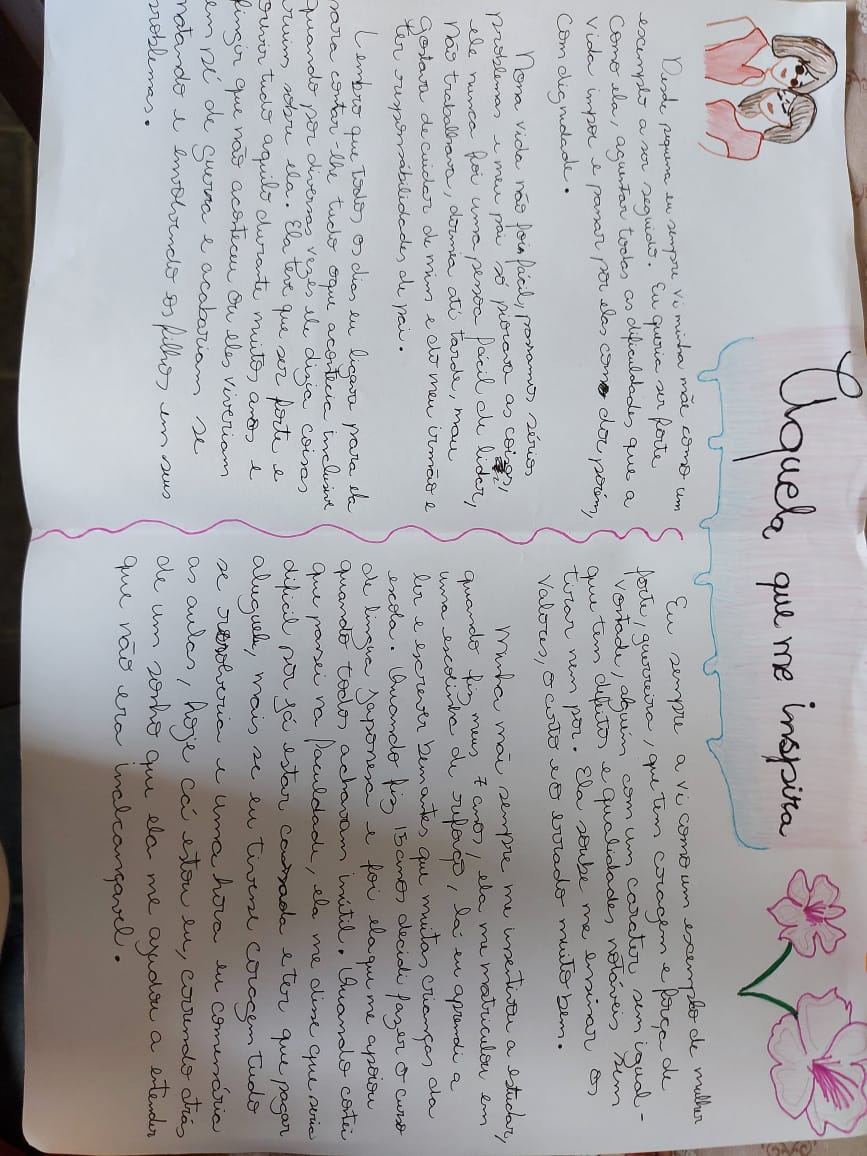 Aquela que me inspira
Desde pequena eu sempre vi minha mãe como um
exemplo a ser seguido. Eu queria ser forte
como ela, aguentar todas as dificuldades que a
vida impor e passar por elas com dor porém,
com dignidade.
Nossa vida não foi fácil, passamos sérios
problemas e meu pai só piorava as coisas,
ele nunca foi uma pessoa fácil de lidar,
não trabalhava, dormia até tarde, mau
gostar de cuidar de mim e do meu irmão e
ter responsabilidades de pai.
Lembro que todos os dias eu ligava para ela
para contar-lhe tudo oque acontecia inclusive
quando por diversas vezes ele dizia coisas
ruins sobre ela. Ela teve que ser forte e
ouvir tudo aquilo durante muitos anos e
fingir que não aconteceu ou eles viveriam
em pé de guerra e acabariam se
matando e envolvendo os filhos em seus
problemas.
Eu sempre a vi como um exemplo de mulher
forte, guerreira, que tem coragem e força de
vontade, alguém com um carater sem igual-
que tem defeitos e qualidades notáveis sem
tirar nem por. Ela soube me ensinar os
valores, o certo e o errado muito bem.
Minha mãe sempre me insentivou a estudar,
quando fiz meus 7 anos, ela me matriculou em
uma escolinha de reforço, la eu aprendi a
ler e escrever bem antes que muitas crianças da
escola. Quando fiz 15 anos decidi fazer o curso
de lingua japonesa e foi ela que me apoiou
quando todos achavam inútil. Quando contei
que passei na faculdade, ela me disse que seria
dificil por já estar cansada e ter que pagar
aluguel, mais se eu tivesse coragem tudo
se resolveria e uma hora eu começaria
as aulas, hoje cá estou eu, correndo atrás
de um sonho que ela me ajudou a entender
que não era inalcançavel.